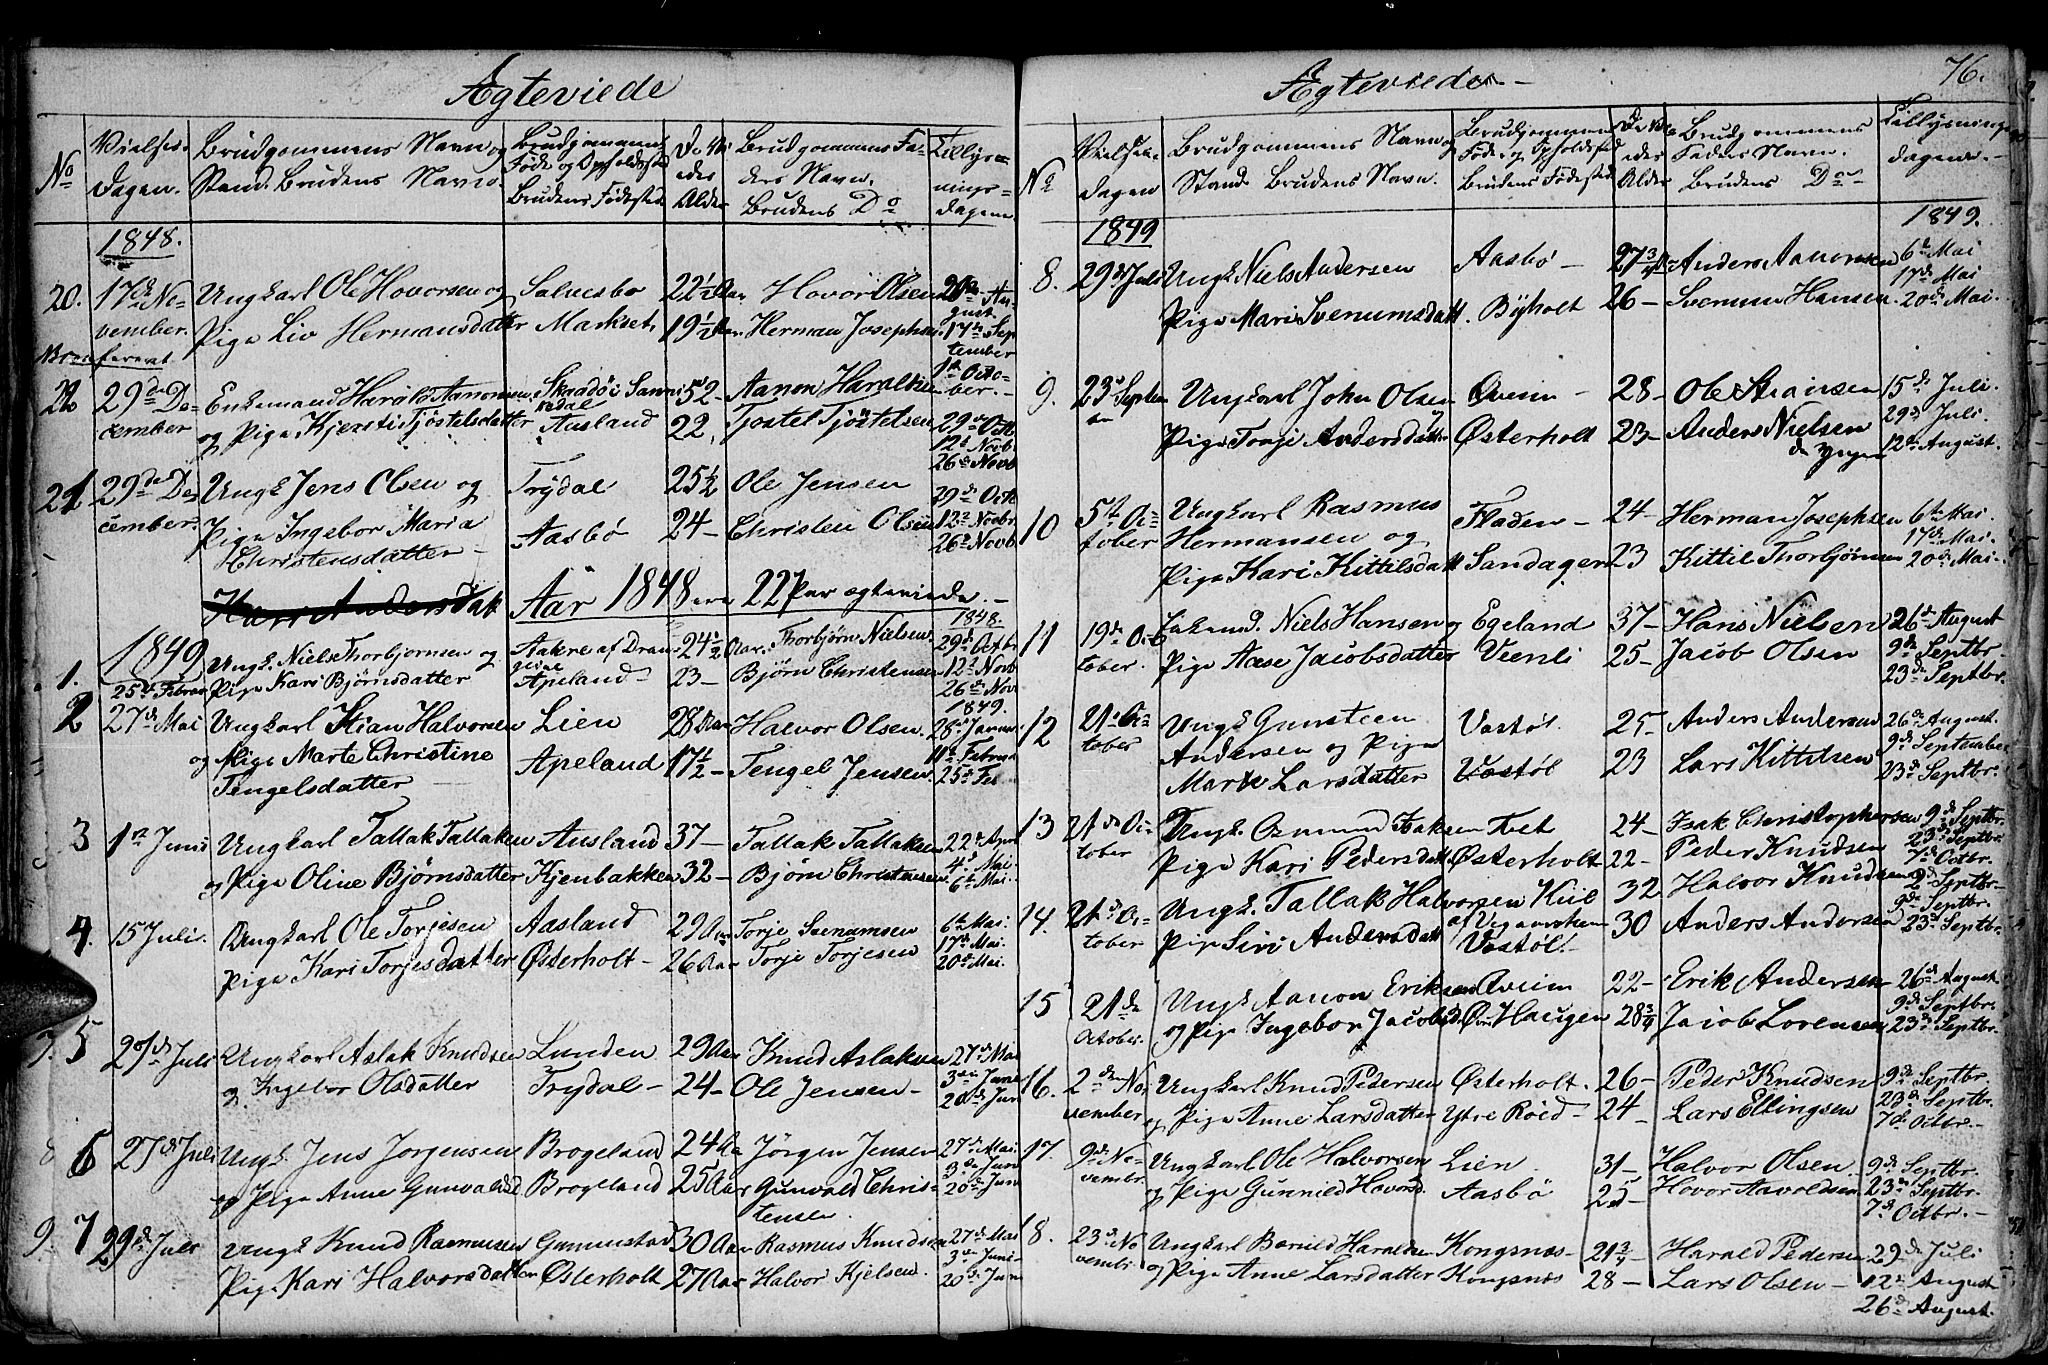 Ægteviede
No
Vielses-
dagen.
Brudgommens Navn og
Stand. Brudens Navn.
Brudgommens
Føde og Opholdssted
Brudens Fødested
De Vi-
edes
Alder
Brudgommens Fa-
ders Navn.
Brudens Do
Tillys-
nings-
dagene
1848.
20. 17de No- Ungkarl Ole Hovorsen og Salvesbo 22½ Aar Hovor Olsen 20de Au-
gust
vember. Pige Liv Hermansdatter Markset, 19½ Aar. Herman Josephsen 17de Sep
tember
1ste Octo-
ber.-
22 29de De- Enkemand Harald Aanonsen Skaadøi Sanni- 52- Aanon Haraldsen
kedal
cember og Pige Kjersti Tjøstelsdatter Aasland 22, Tjøstel Tjøstelsen 29de Octb
12te Novb.
26de Novb
21 29de De- Ungk. Jens Olsen og Trydal 25½ Ole Jensen 29de Octb
cember. Pige Ingebor Maria Aasbø 24- Christen Olsen 12te Novbr.
Christensdatter - 26de Novb
Kari Andersdatt Aar 1848 ere 22 Par ægteviede.-
1849
1848.
1. Ungk. Niels Thorbjørnsen og Aakre af Dran- 24½ Aar. Thorbjørn Nielsen 29de Octb
gine
25de Februar Pige Kari Bjørnsdatter Apeland 23- Bjørn Christensen 12te Novb
26de Nov
1849.
2 27de Mai Ungkarl Stian Halvorsen Lien 28 Aar Halvor Olsen. 28de Januar
og Pige Marte Christine Apeland 17½- Tengel Jensen 11te Februar
Tengelsdatter - 25de Feb
3 1ste Juni Ungkarl Tallak Tallaksen Aasland 37- Tallak Tallaksen 22de April
og Pige Oline Bjørnsdatter Kjenbakken 32- Bjørn Christensen 4de Mai.
6te Mai.
4. 15 Juli. Ungkarl Ole Torjesen Aasland 29 Aar Torje Svenumsen 6te Mai.
17de Mai.
Pige Kari Torjesdatter Østerholt- 26 Aar Torje Torjesen 20de Mai.
5 27de Juli Ungkarl Aslak Knudsen Lunden 29 Aar Knud Aslaksen 27de Mai
3die Juni
P. Ingebor Olsdatter Trydal- 24- Ole Jensen- 20de Jun
6 27de Juli Ungk. Jens Jorgensen Brogeland 24 Aa Jörgen Jensen 27de Mai.
3die Juni
og Pige Anne Gunvaldsd Brogeland 25 Aar Gunvald Chris- 20de Jun
tensen.
9. 7 29de Juli Ungk Knud Rasmussen Gunnestad 30 Aar Rasmus Knudsen 27de Mai
3die Juni
Pige Kari Halvorsdatter Østerholt 27 Aar Halvor Kjelsen. 20de Jun
Ægteviede- 76.
No
Vielses-
dagen
Brudgommens Navn og
Stand. Brudens Navn.
Brudgommens
Føde og Opholdssted
Brudens Fødested
De Vi-
edes
Alder
Brudgommens
Faders Navn.
Brudens Do
Tillysnings-
dagene.-
1849 1849.
8. 29de Juli Ungk Niels Andersen Aasbø- 27¾ Anders Aanonsen 6te Mai
17de Mai
Pige Mari Svenumsdatt. Byholt 26- Svenum Hansen. 20de Mai.
9. 23de Septem Ungkarl John Olsen Qveim- 28- Ole Stiansen 15de Juli.
ber 29de Juli.
Pige Torje Andersdatter Østerholt 23- Anders Nielsen 12te August.
d. yngre
10 5te Oc- Ungkarl Rasmus Fladen- 24- Herman Josephsen 6te Mai.
tober Hermansen og 17de Mai.
Pige Kari Kittilsdatt Sandagen 23 Kittil Thorbjørnsen 20de Mai-
11 19de Oc- Enkemd. Niels Hansen og Egeland 37- Hans Nielsen 26de August
tober. Pige Aase Jacobsdatter Veenli 25- Jacob Olsen 9de Septbr.
23de Septbr.
12 21de Oc- Ungk Gunsteen Vastøl. 25- Anders Andersen 26de August.
tober Andersen og Pige 9de September
Marte Larsdatter Vastøl 23 Lars Kittilsen 23de Septbr.
13 21de Oc- Ungk. Osmund Isaksen Tvet 24- Isak Christophersen 9de Septbr.
23de Septbr
tober Pige Kari Pedersdatt. Østerholt 22- Peder Knudsen 7de Octbr.
14. 21de Oc- Ungk. Tallak Halvorsen Kiil 32 Halvor Knudsen 2de Septbr.
af Vegaarsheien 9de Septbr.
tober Pige Siri Andersdatt Vastøl. 30 Anders Andersen 23de Septbr.
15 21de Ungk Aanon Eriksen Qveim 22- Erik Andersen 26de August
9de Septbr.
October. og Pige Ingebor Jacobsd. Øvre Haugen 28¾ Jacob Lorensen 23de Septbr.
16. 2den No- Ungkarl Knud Pedersen Østerholt. 26- Peder Knudsen 9de Septbr.
23de Septbr.
vember og Pige Anne Larsdatter Ytre Röed- 24- Lars Ellingsen 7de Octbr.-
17. 9de No- Ungkarl Ole Halvorsen Lien 31- Halvor Olsen 9de Septbr
vembr. og Pige Gunnild Hovorsd. Aasbö 25- Hovor Aavoldsen 23de Septbr.
7de Octbr.-
18. 23de No Ungkarl Berulf Haralden Kongsnæs- 21¾- Harald Pedersen 29de Juli
vembr. og Pige Anne Larsdatter Kongsnæs 28- Lars Olsen- 12te August
26de August.